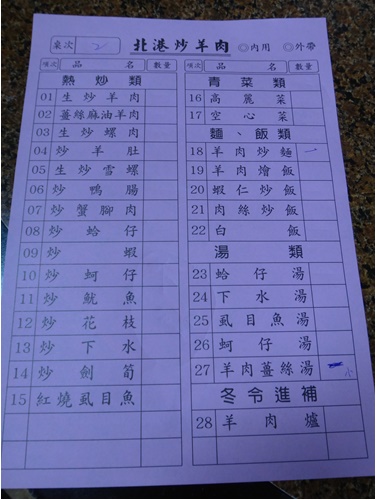 桌次 2 北港炒羊肉 ◎內用 ◎外帶
項次 品名 數量
熱炒類
01 生炒羊肉
02 薑絲麻油羊肉
03 生炒螺肉
04 炒羊肚
05 生炒雪螺
06 炒鴨腸
07 炒蟹腳肉
08 炒蛤仔
09 炒蝦
10 炒蚵仔
11 炒魷魚
12 炒花枝
13 炒下水
14 炒劍筍
15 紅燒虱目魚
項次 品名 數量
青菜類
16 高麗菜
17 空心菜
麵、飯類
18 羊肉炒麵 一
19 羊肉燴飯
20 蝦仁炒飯
21 肉絲炒飯
22 白飯
湯類
23 蛤仔湯
24 下水湯
25 虱目魚湯
26 蚵仔湯
27 羊肉薑絲湯 一小
冬令進補
28 羊肉爐